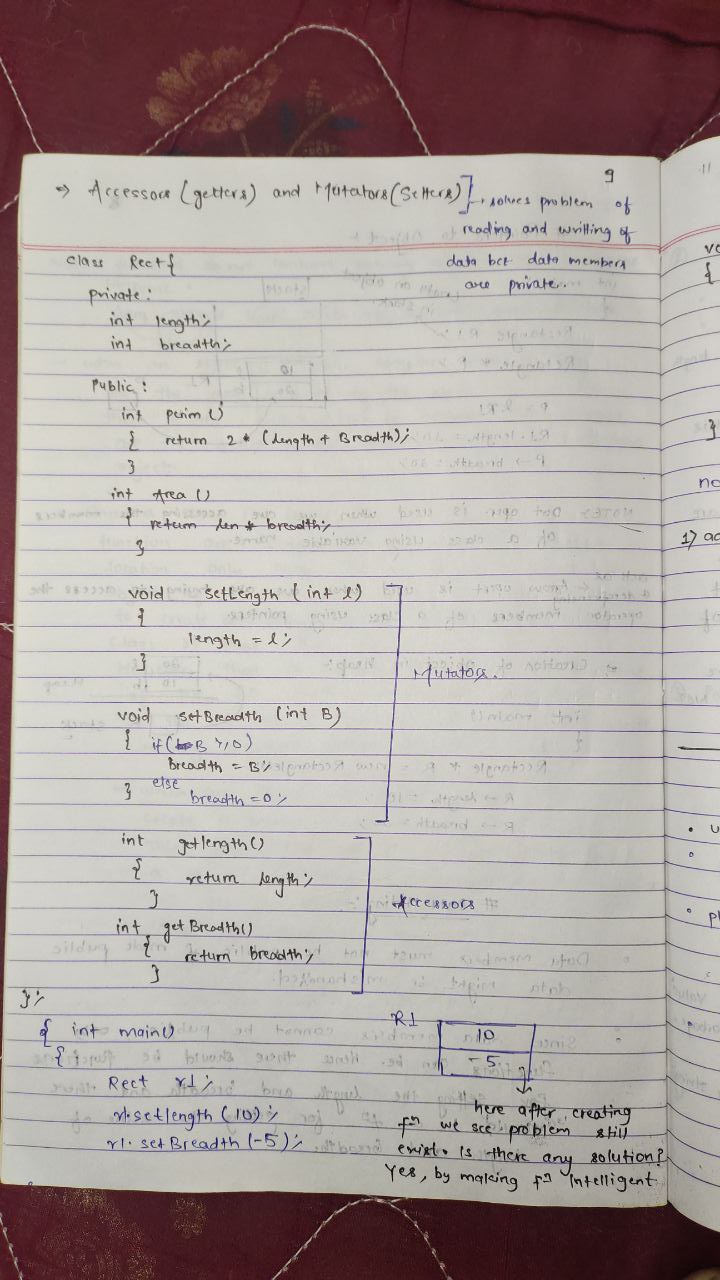 9
⇒ Accessors (getters) and Mutators (Setters)] → solves problem of
reading and writting of
data bcz data members
are private.
class Rect {
private :
int length;
int breadth;
Public :
int perim ()
{ return 2 * (length + Breadth);
}
int Area ()
{ return len * breadth;
}
void setLength (int l)
{
length = l;
}
Mutators.
void setBreadth (int B)
{ if (B >, 0)
breadth = B;
else
} breadth = 0;
int getlength ()
{
return length;
}
Accessors
int getBreadth()
{
return breadth;
}
};
{ int main()
{
Rect r1;
r1.setlength (10);
r1.setBreadth (-5);
R1
10
-5
here after creating
fⁿ we see problem still
exist. Is there any solution?
Yes, by making fⁿ Intelligent
11
{
}
1)